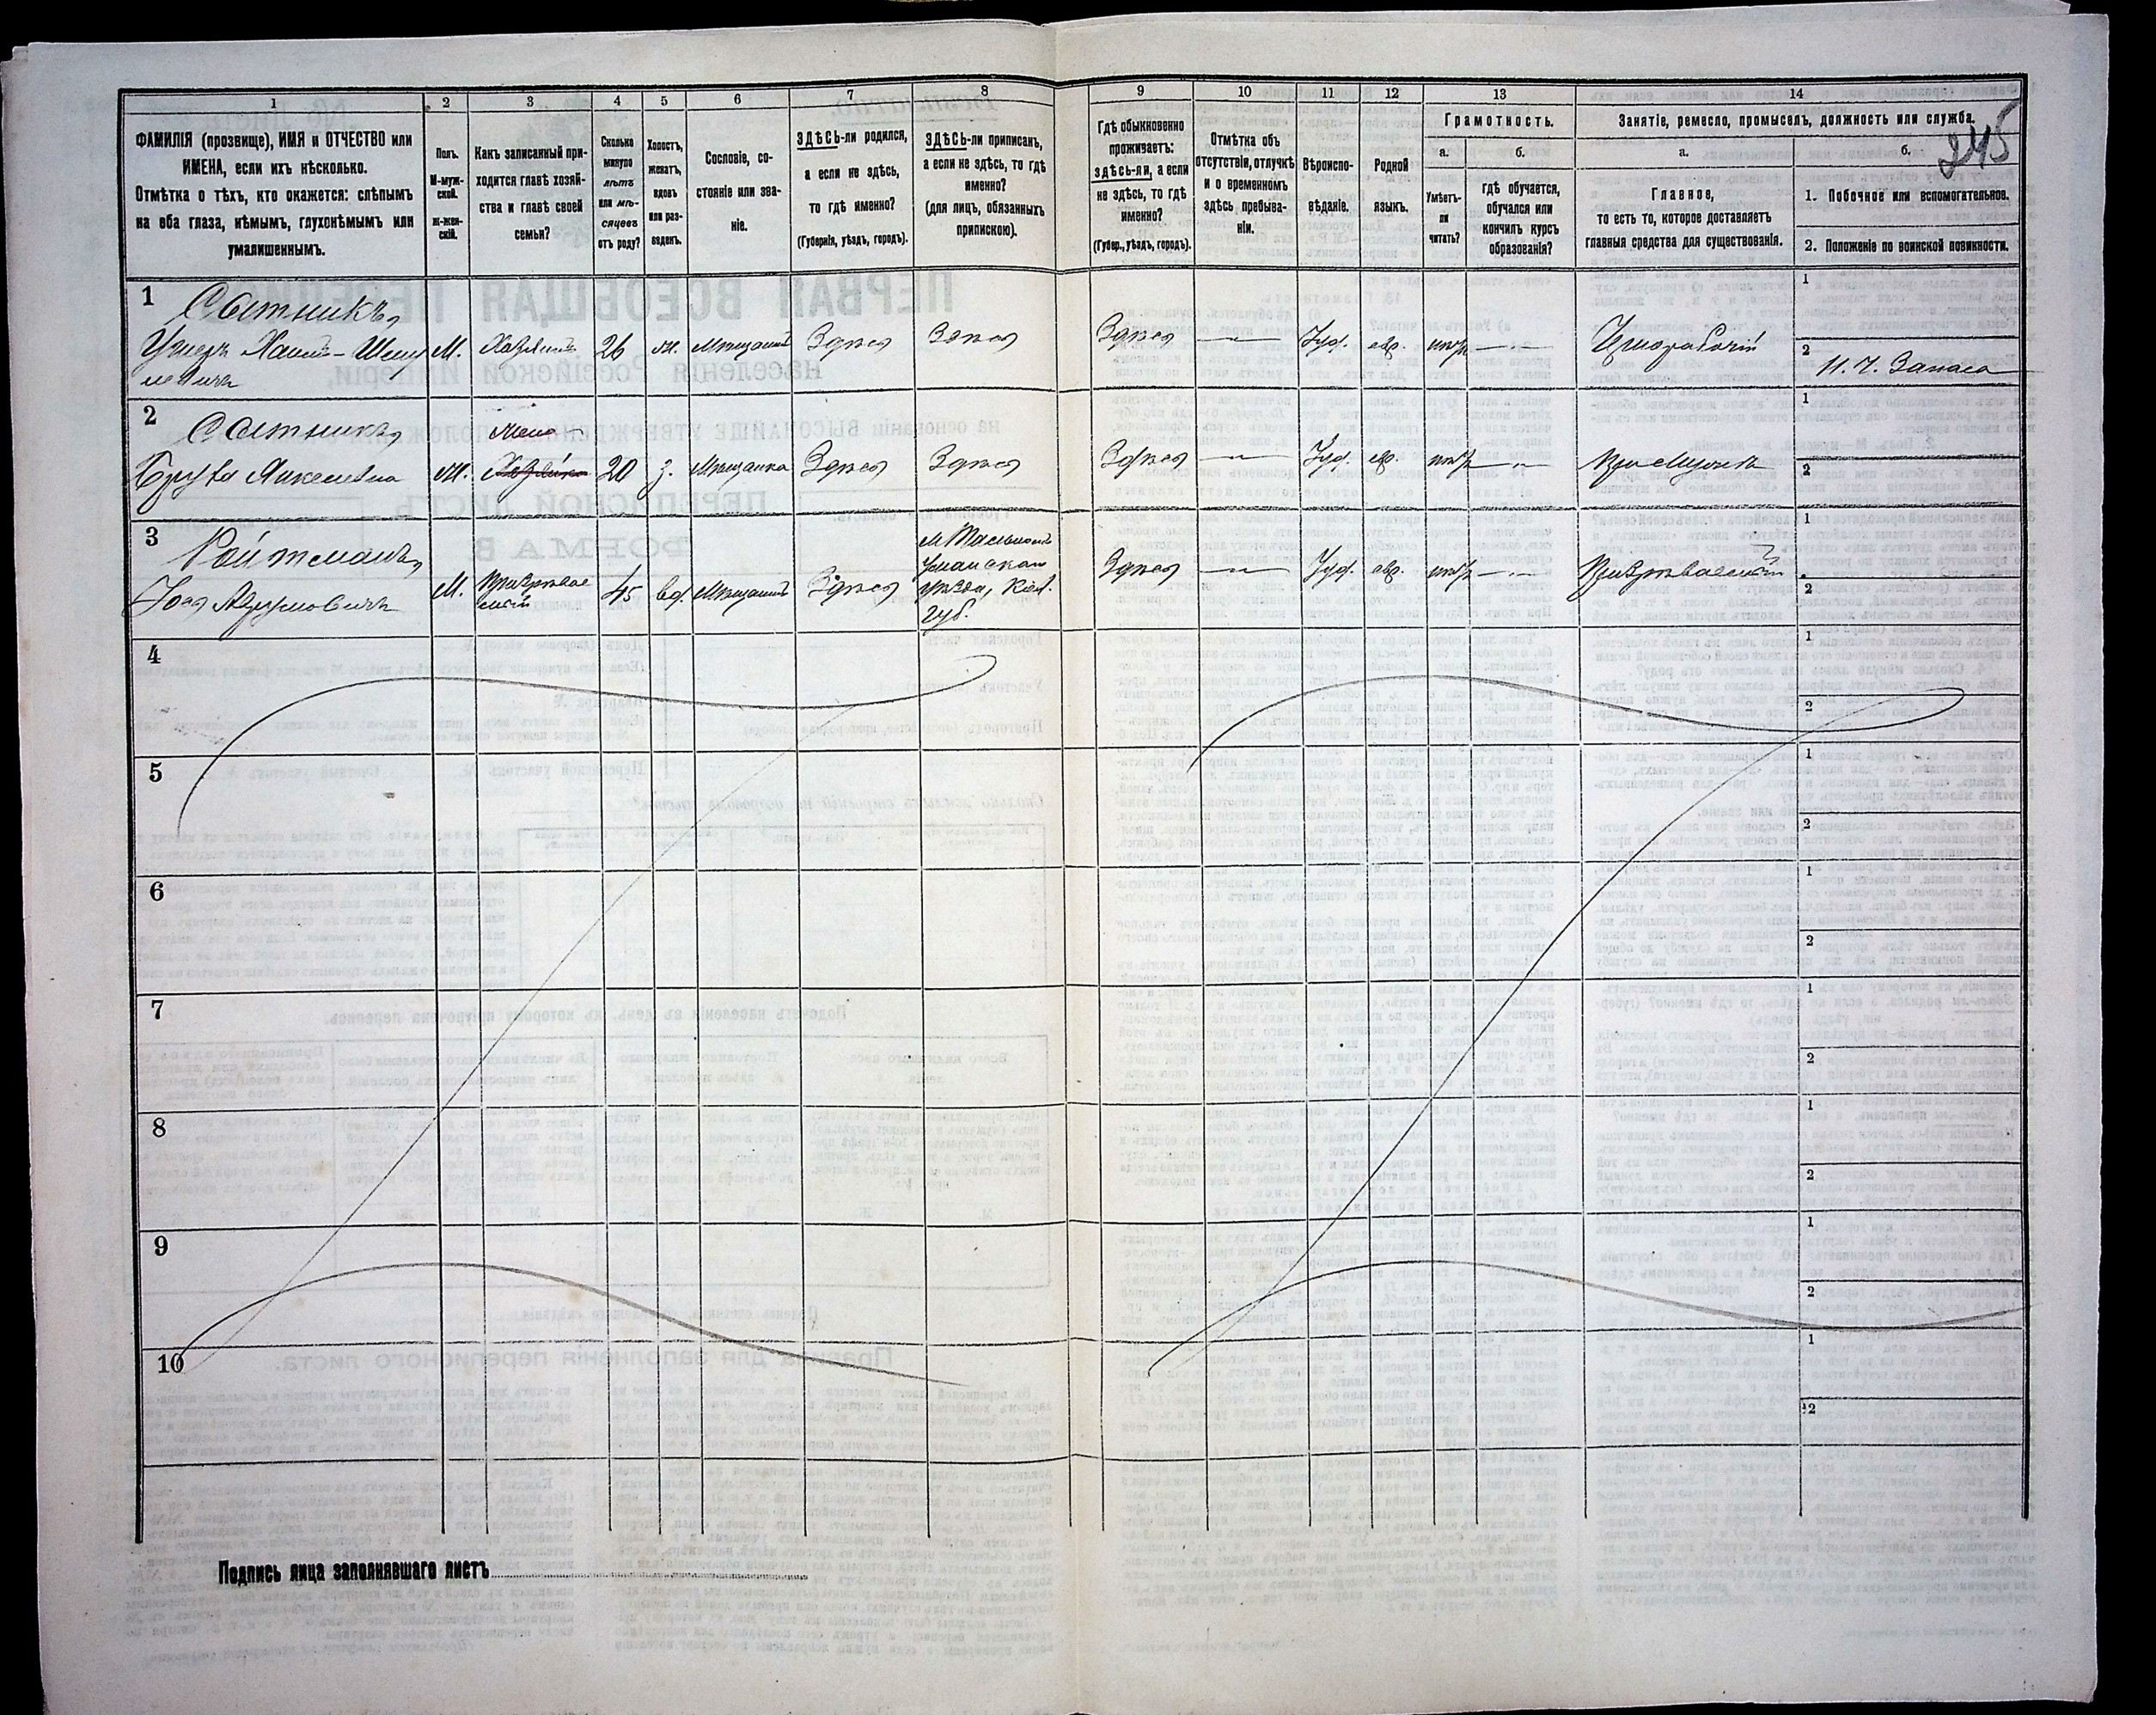 1
2
3
4
5
6
7
8
9
10
11
12
13
14
245
ФАМИЛІЯ (прозвище), ИМЯ и ОТЧЕСТВО или
ИМЕНА, если ихъ нѣсколько.
Отмѣтка о тѣхъ, кто окажется: слѣпымъ
на оба глаза, нѣмымъ, глухонѣмымъ или
умалишеннымъ.
Полъ.
М-муж-
ской.
ж-жен-
скій.
Какъ записанный при-
ходится главѣ хозяй-
ства и главѣ своей
семьи?
Сколько
минуло
лѣтъ
или мѣ-
сяцевъ
отъ роду?
Холостъ,
женатъ,
вдовъ
или раз-
веденъ.
Сословіе, со-
стояніе или зва-
ніе.
ЗДѢСЬ-ли родился,
а если не здѣсь,
то гдѣ именно?
(Губернія, уѣздъ, городъ).
ЗДѢСЬ-ли приписанъ,
а если не здѣсь, то гдѣ
именно?
(для лицъ, обязанныхъ
припискою).
Гдѣ обыкновенно
проживаетъ:
здѣсь-ли, а если
не здѣсь, то гдѣ
именно?
(Губер., уѣздъ, городъ).
Отмѣтка объ
отсутствіи, отлучкѣ
и о временномъ
здѣсь пребыва-
ніи.
Вѣроиспо-
вѣданіе.
Родной
языкъ.
Грамотность.
а.
Умѣетъ-
ли
читать?
б.
гдѣ обучается,
обучался или
кончилъ курсъ
образованія?
Занятіе, ремесло, промыселъ, должность или служба.
а.
Главное,
то есть то, которое доставляетъ
главныя средства для существованія.
б.
1. Побочное или вспомогательное.
2. Положеніе по воинской повинности.
1
Сотникъ,
М.
Хозяинъ
26
ж.
Мѣщанинъ
Здѣсь
Здѣсь
Здѣсь
—
Іуд.
евр.
нѣтъ
—
Чернорабочій
1
2
И. Ч. Запаса
2
Сотникъ,
Янкелевна
Жена
Хозяина
Ж.
20
з.
Мѣщанка
Здѣсь
Здѣсь
Здѣсь
—
Іуд.
евр.
нѣтъ
—
При мужѣ
1
2
3
Ройтманъ,
М.
Призрѣвае
мый
45
вд.
Мѣщанинъ
Здѣсь
Уманскаго
уѣзда, Кіев.
губ.
Здѣсь
—
Іуд.
евр.
нѣтъ
—
Призрѣваемый
1
2
4
1
2
5
1
2
6
1
2
7
1
2
8
1
2
9
1
2
10
1
2
Подпись лица заполнявшаго листъ